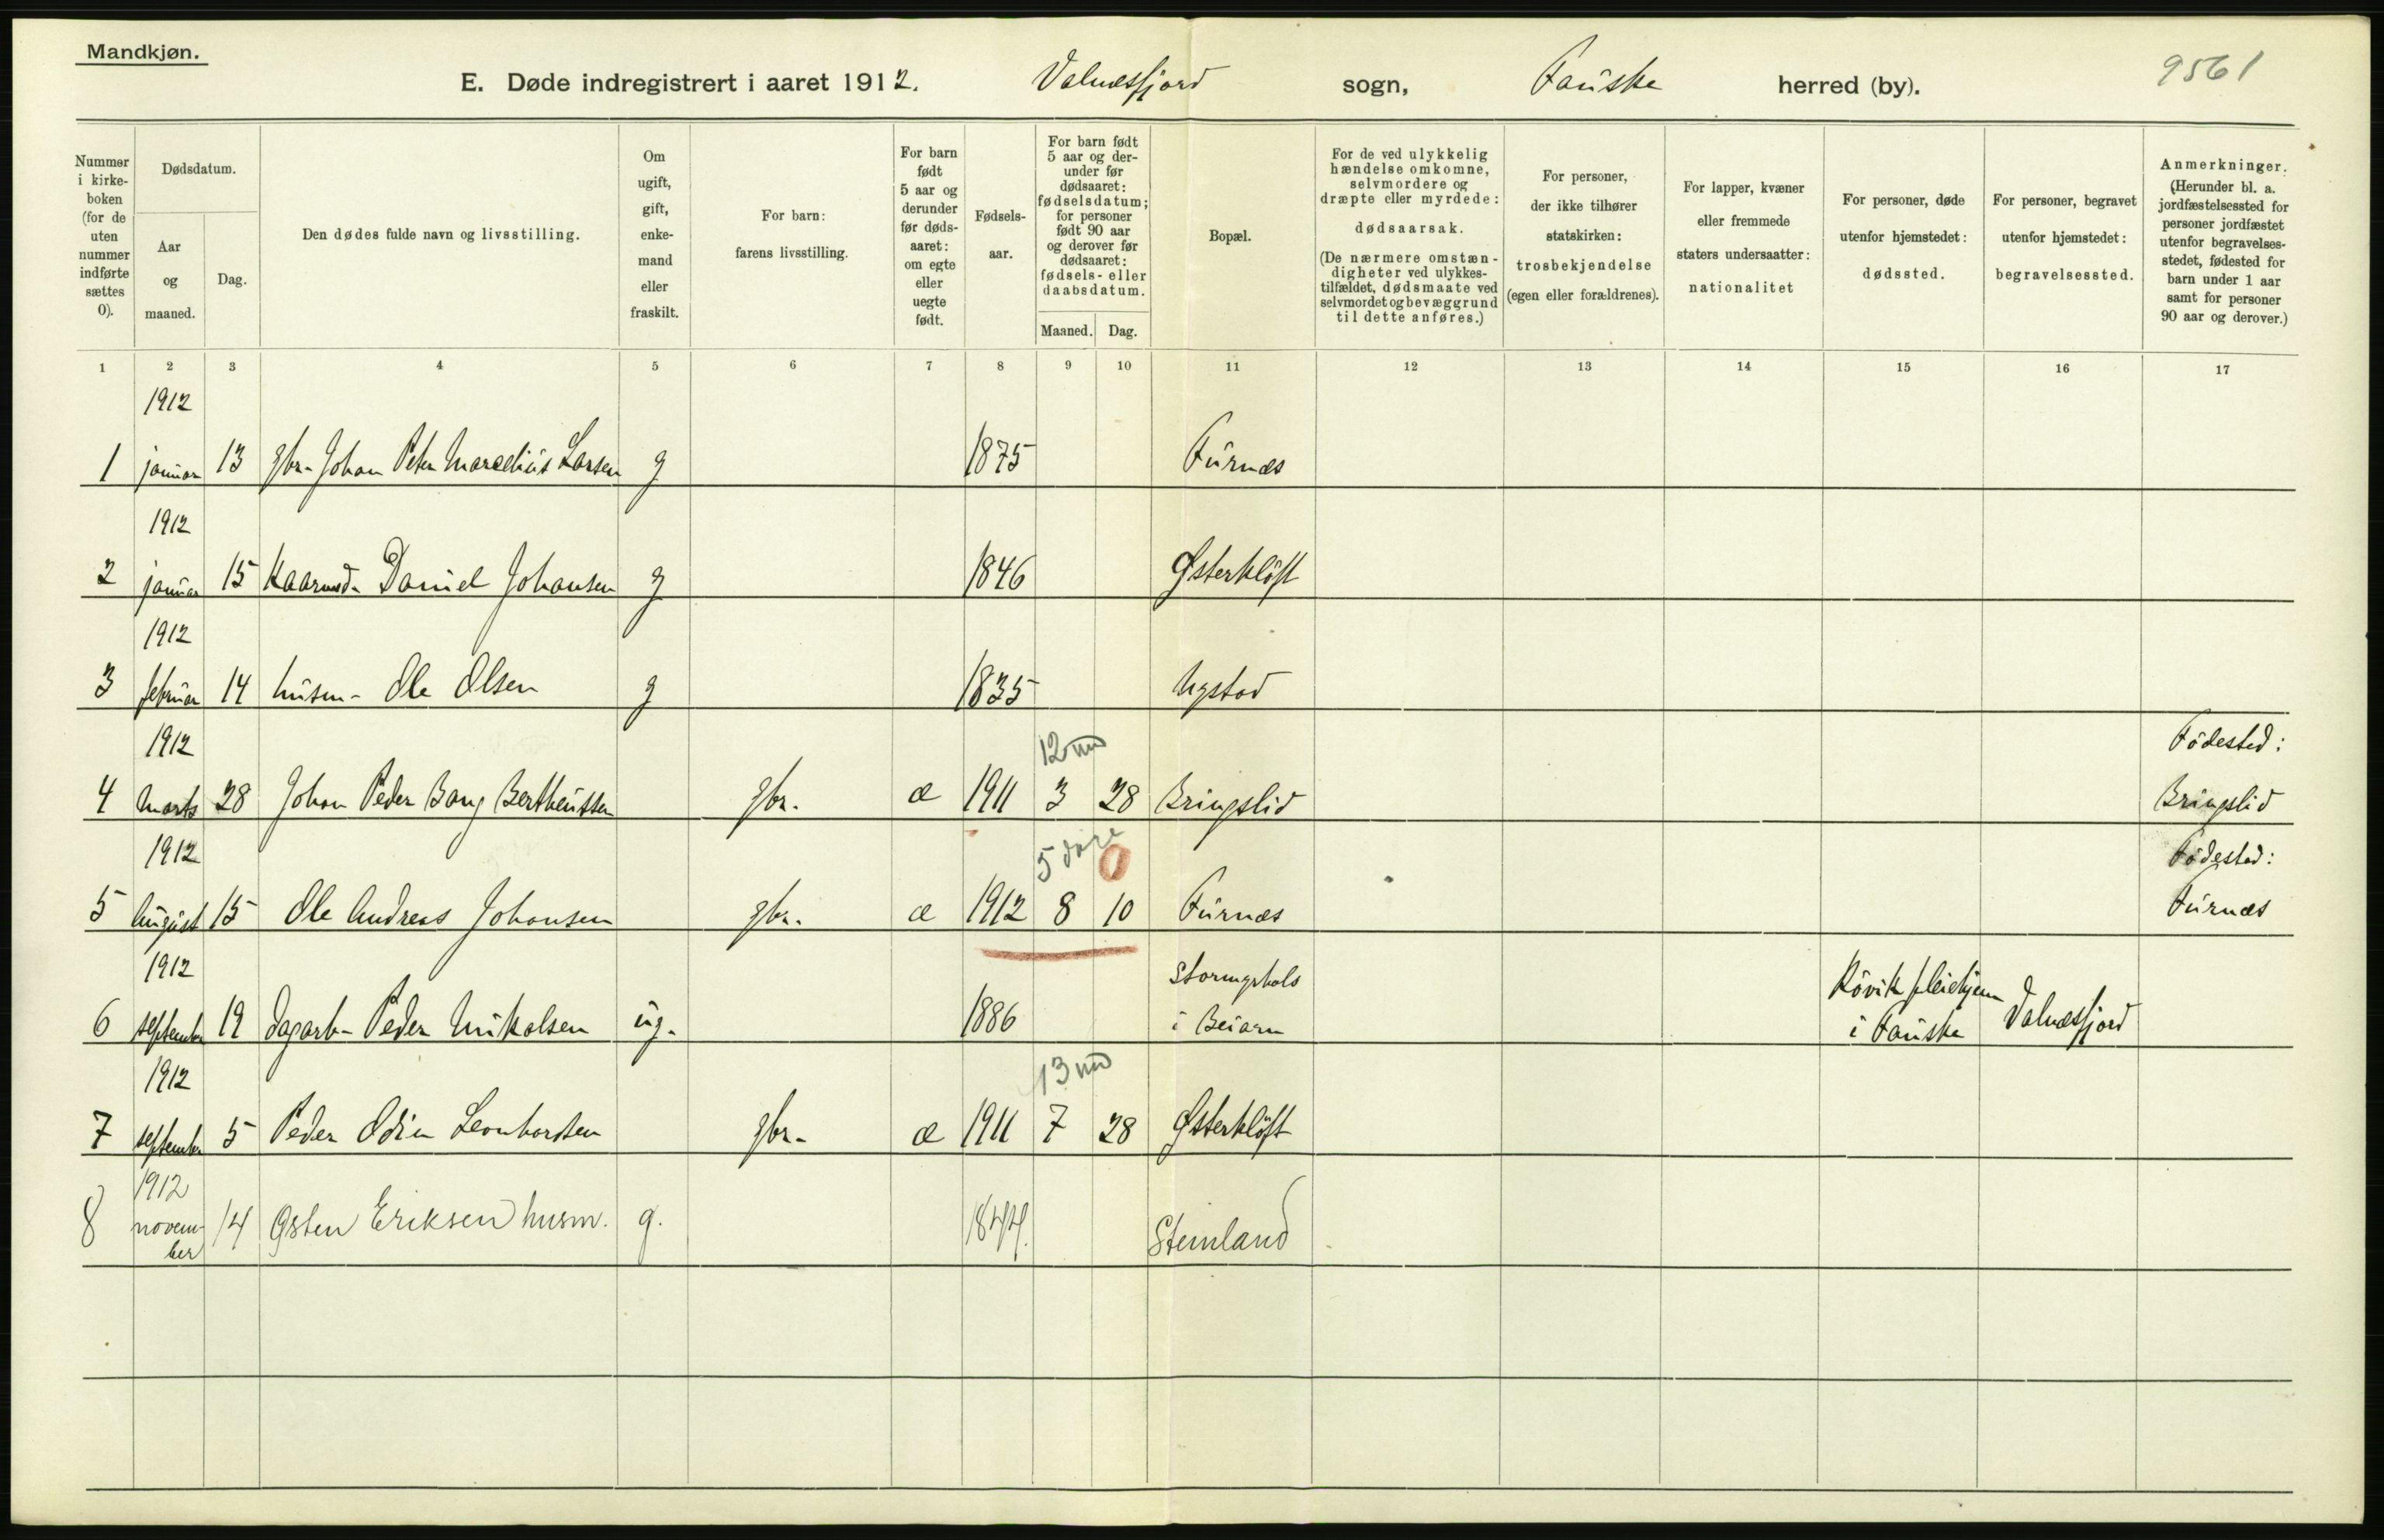 Mandkjøn.
E. Døde indregistrert i aaret 1912. Valnesfjord sogn, Fauske herred (by). 9561
Nummer i kirke- boken (for de uten nummer indførte sættes 0).
Dødsdatum.
Aar og maaned.
Dag.
Den dødes fulde navn og livsstilling.
Om ugift, gift, enke- mand eller fraskilt.
For barn: farens livsstilling.
For barn født 5 aar og derunder før døds- aaret: om egte eller uegte født.
Fødsels- aar.
For barn født 5 aar og der- under før dødsaaret: fødselsdatum; for personer født 90 aar og derover før dødsaaret: fødsels- eller daabsdatum.
Maaned. Dag.
Bopæl.
For de ved ulykkelig hændelse omkomne, selvmordere og dræpte eller myrdede: dødsaarsak. (De nærmere omstæn- digheter ved ulykkes- tilfældet, dødsmaate ved selvmordet og bevæggrund til dette anføres.)
For personer, der ikke tilhører statskirken: trosbekjendelse (egen eller forældrenes).
For lapper, kvæner eller fremmede staters undersaatter: nationalitet
For personer, døde utenfor hjemstedet: dødssted.
For personer, begravet utenfor hjemstedet: begravelsessted.
Anmerkninger. (Herunder bl. a. jordfæstelsessted for personer jordfæstet utenfor begravelses- stedet, fødested for barn under 1 aar samt for personer 90 aar og derover.)
1 2 3 4 5 6 7 8 9 10 11 12 13 14 15 16 17
1912
1 januar 13 gbr. Johan Peter Marcelius Larsen g 1875 Furnes
1912
2 januar 15 Kaarmd. Daniel Johansen g 1846 Østerkløft
1912
3 februar 14 husm. Ole Olsen g 1835 Nystad
1912 12 md Fødested:
4 Marts 28 Johan Peder Bang Bertheussen gbr. æ 1911 3 28 Bringslid Bringslid
1912 5 dage 0 Fødested:
5 August 15 Ole Andreas Johansen gbr. æ 1912 8 10 Furnes Furnes
1912 Røvik pleiehjem
6 september 19 dagarb. Peder Mikalsen ug. 1886 i Beiarn i Fauske Valnesfjord
1912 13 md
7 september 5 Peder Odin Leonhardsen gbr. æ 1911 7 28 Østerkløft
1912
8 novem- 14 Østen Eriksen husm. g. 1844. Stemland
ber